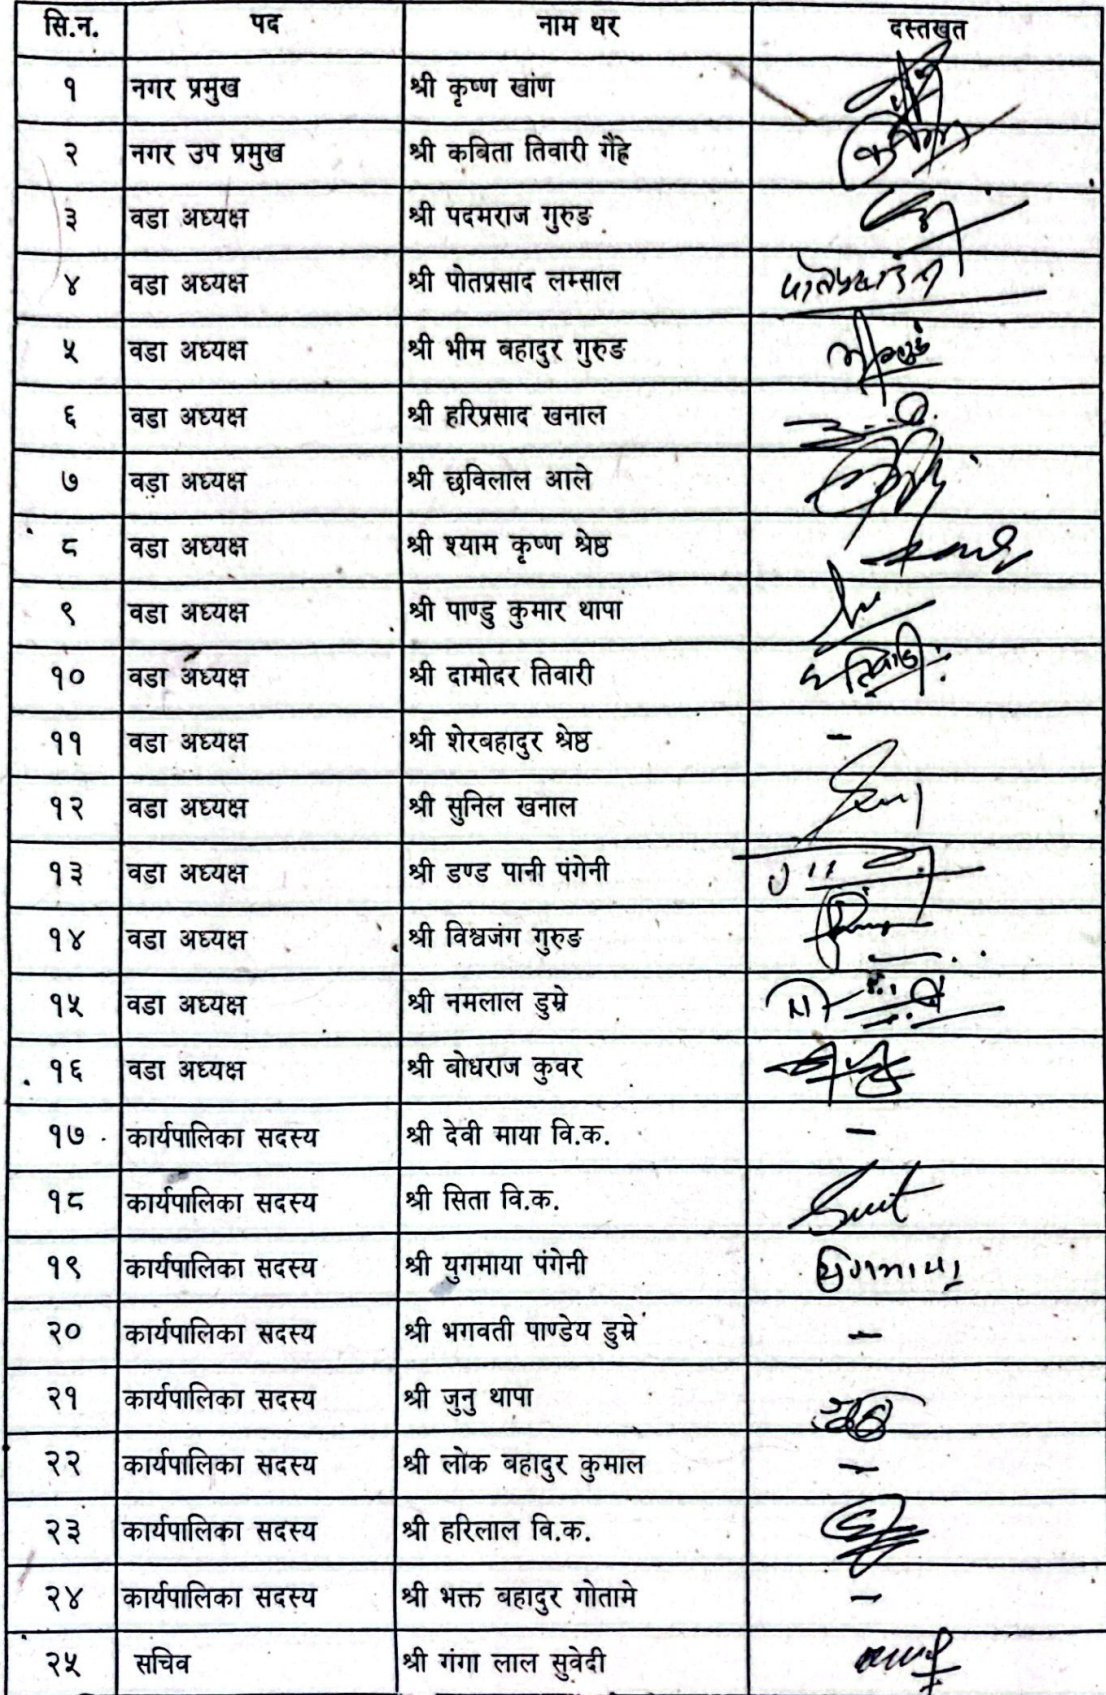 सि.न. पद नाम थर दस्तखत
१ नगर प्रमुख श्री कृष्ण खांण
२ नगर उप प्रमुख श्री कबिता तिवारी गैह्रे
३ वडा अध्यक्ष श्री पदमराज गुरुङ
४ वडा अध्यक्ष श्री पोतप्रसाद लम्साल
५ वडा अध्यक्ष श्री भीम बहादुर गुरुङ
६ वडा अध्यक्ष श्री हरिप्रसाद खनाल
७ वडा अध्यक्ष श्री छविलाल आले
८ वडा अध्यक्ष श्री श्याम कृष्ण श्रेष्ठ
९ वडा अध्यक्ष श्री पाण्डु कुमार थापा
१० वडा अध्यक्ष श्री दामोदर तिवारी
११ वडा अध्यक्ष श्री शेरबहादुर श्रेष्ठ -
१२ वडा अध्यक्ष श्री सुनिल खनाल
१३ वडा अध्यक्ष श्री डण्ड पानी पंगेनी
१४ वडा अध्यक्ष श्री विश्वजंग गुरुङ
१५ वडा अध्यक्ष श्री नमलाल डुम्रे
१६ वडा अध्यक्ष श्री बोधराज कुवर
१७ कार्यपालिका सदस्य श्री देवी माया वि.क. -
१८ कार्यपालिका सदस्य श्री सिता वि.क.
१९ कार्यपालिका सदस्य श्री युगमाया पंगेनी युगमाया
२० कार्यपालिका सदस्य श्री भगवती पाण्डेय डुम्रे -
२१ कार्यपालिका सदस्य श्री जुनु थापा
२२ कार्यपालिका सदस्य श्री लोक बहादुर कुमाल -
२३ कार्यपालिका सदस्य श्री हरिलाल वि.क.
२४ कार्यपालिका सदस्य श्री भक्त बहादुर गोतामे -
२५ सचिव श्री गंगा लाल सुवेदी